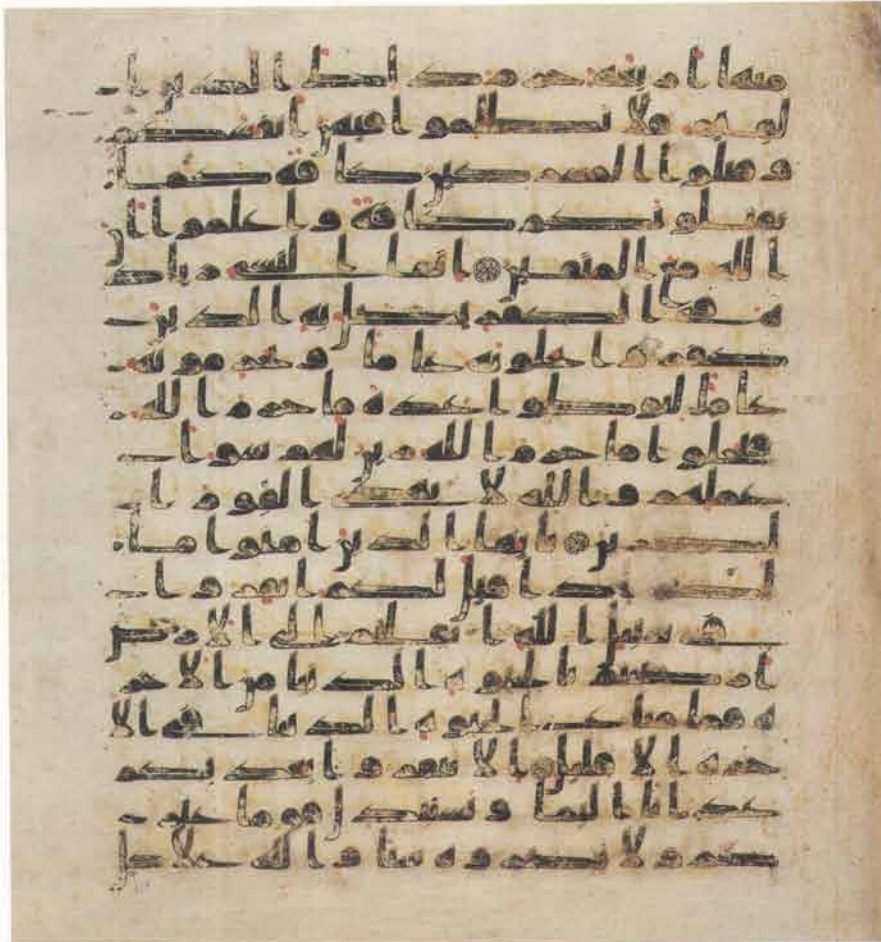 منها اربعة حرم ذلك الدين ا
لقيم فلا تظلموا فيهن انفسكم
وقتلوا المشركين كافة كما
يقتلونكم كافة واعلموا ان
الله مع المتقين انما النسى زياد
ة في الكفر يضل به الذين
كفروا يحلونه عاما ويحرمونه
عاما ليوطوا عدة ما حرم الله
فيحلوا ما حرم الله زين لهم سو ا
عملهم والله لا يهدى القوم ا
لكفرين يايها الذين امنوا ما
لكم اذا قيل لكم انفروا
فى سبيل الله اثاقلتم الى الارض
ارضيتم بالحيوة الدنيا من الاخر
ة فما متع الحيوة الدنيا فى الا
خرة الا قليل الا تنفروا يعذبكم
عذابا اليما ويستبدل قوما غير
كم ولا تضروه شيا والله على كل